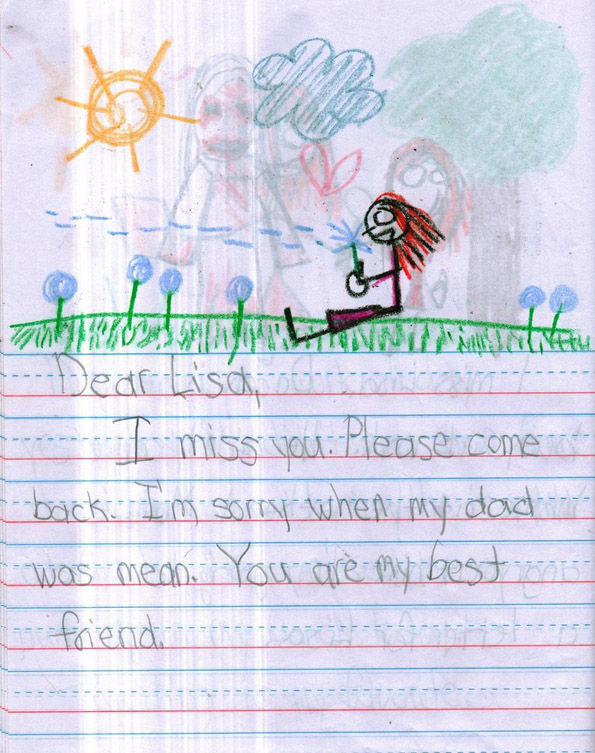 Dear Lisa,
I miss you. Please come
back. I'm sorry when my dad
was mean. You are my best
friend.